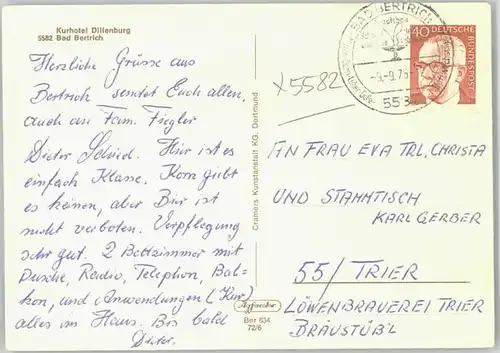 Kurhotel Dillenburg
5582 Bad Bertrich
Herzliche Grüsse aus
Bertrich sendet Euch allen,
auch an Fam. Fiegler
Dieter Schied. Hier ist es
einfach Klasse. Korn gibt
es keinen, aber Bier ist
nicht verboten. Verpflegung
sehr gut. 2 Bettzimmer mit
Dusche, Radio, Telephon, Bal-
kon, und Anwendungen (Kur)
alles im Haus. Bis bald
Dieter.
Cramers Kunstanstalt KG, Dortmund
Ber 634
72/6
BAD BERTRICH
-9.75
558
40
DEUTSCHE
BUNDESPOST
x5582
AN FRAU EVA TRL, CHRISTA
UND STAMMTISCH
KARL GERBER
55/ TRIER
LÖWENBRAUEREI TRIER
BRÄUSTÜB'L